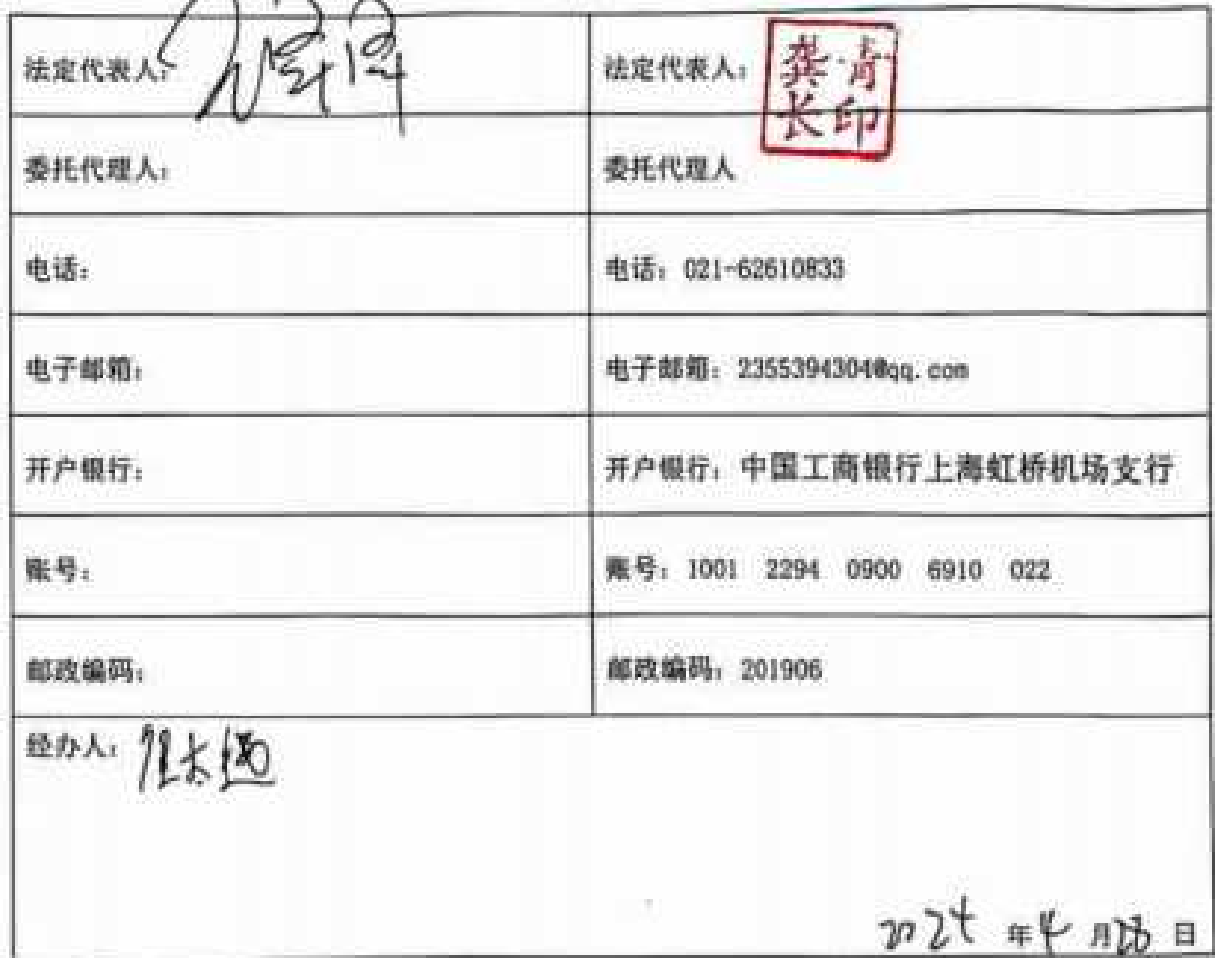 法定代表人:
法定代表人:
龚青
长印
委托代理人:
委托代理人
电话:
电话: 021-62610833
电子邮箱:
电子邮箱: 2355394304@qq.com
开户银行:
开户银行: 中国工商银行上海虹桥机场支行
账号:
账号: 1001 2294 0900 6910 022
邮政编码:
邮政编码: 201906
经办人:
2024 年 4 月 28 日